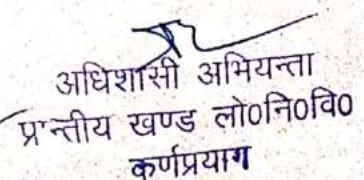 अधिशासी अभियन्ता
प्रान्तीय खण्ड लो०नि०वि०
कर्णप्रयाग